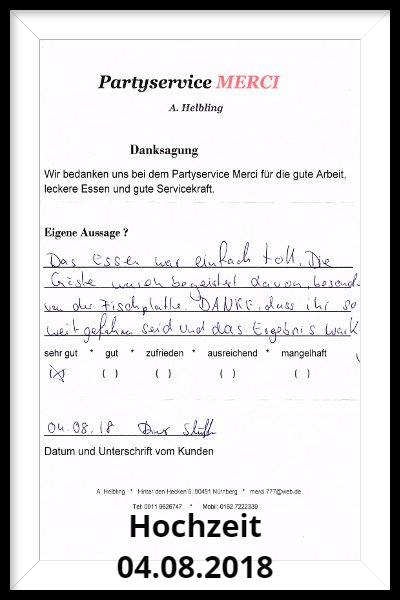 Partyservice MERCI
A. Helbling
Danksagung
Wir bedanken uns bei dem Partyservice Merci für die gute Arbeit,
leckere Essen und gute Servicekraft.
Eigene Aussage ?
Das Essen war einfach toll. Die
Gäste waren begeistert davon, besond
von der Fischplatte. DANKE, dass ihr so
weit gefahren seid und das Ergebnis
sehr gut * gut * zufrieden * ausreichend * mangelhaft
(X) ( ) ( ) ( ) ( )
04.08.18
Datum und Unterschrift vom Kunden
A. Helbling * Hinter den Hecken 5, 90451 Nürnberg * merci.777@web.de
Tel: 0911 9626747 * Mobil: 0162 7222339
Hochzeit
04.08.2018